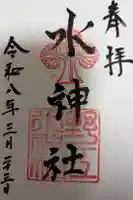 奉拝
水神社
令和八年三月二十三日